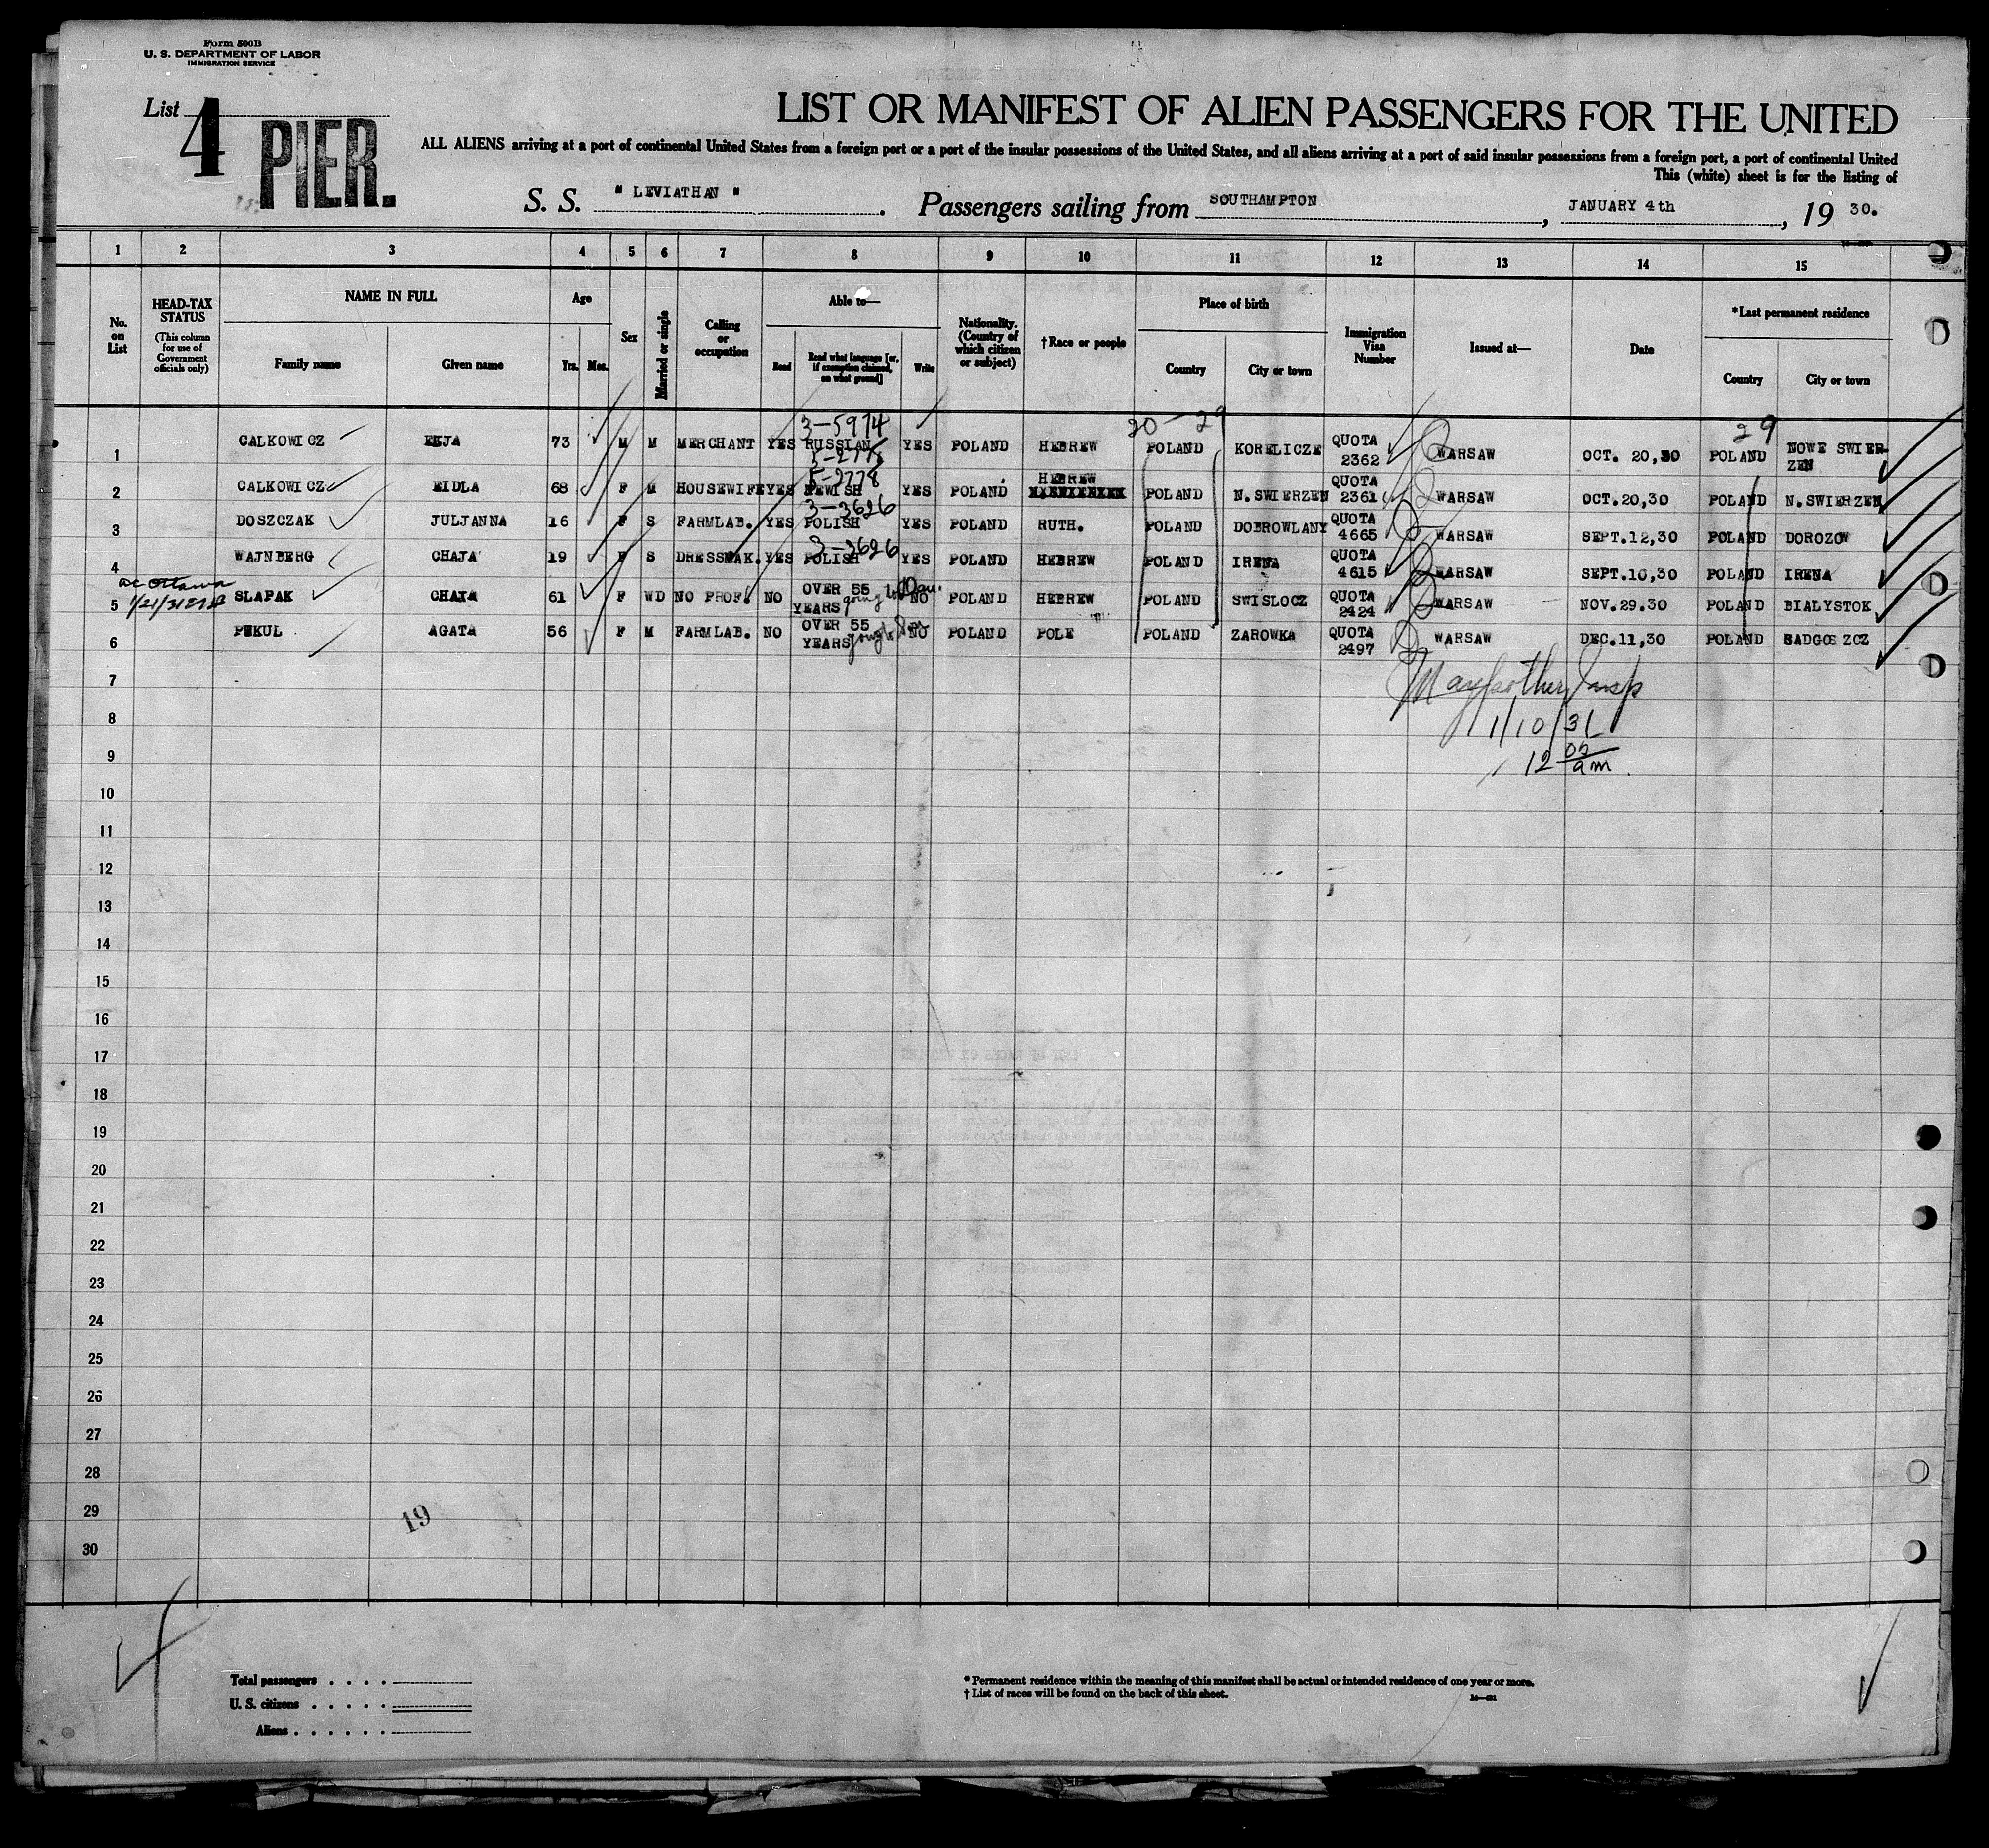 Form 500B
U. S. DEPARTMENT OF LABOR
IMMIGRATION SERVICE
List 4
PIER.
LIST OR MANIFEST OF ALIEN PASSENGERS FOR THE UNITED
ALL ALIENS arriving at a port of continental United States from a foreign port or a port of the insular possessions of the United States, and all aliens arriving at a port of said insular possessions from a foreign port, a port of continental United
This (white) sheet is for the listing of
S. S. "LEVIATHAN". Passengers sailing from SOUTHAMPTON, JANUARY 4th, 19 30.
1 2 3 4 5 6 7 8 9 10 11 12 13 14 15
No. on List
HEAD-TAX STATUS (This column for use of Government officials only)
NAME IN FULL
Family name
Given name
Age
Yrs. Mos.
Sex
Married or single
Calling or occupation
Able to—
Read
Read what language [or, if exemption claimed, on what ground]
Write
Nationality. (Country of which citizen or subject)
†Race or people
Place of birth
Country
City or town
Immigration Visa Number
Issued at—
Date
*Last permanent residence
Country
City or town
3-5974
20-29
29
1 CALKOWICZ 73 M M MERCHANT YES RUSSIAN YES POLAND HEBREW POLAND KORELICZE QUOTA 2362 WARSAW OCT. 20,30 POLAND NOWE SWIERZEN
5-2778
2 CALKOWICZ EIDLA 68 F M HOUSEWIFE YES JEWISH YES POLAND HEBREW POLAND N.SWIERZEN QUOTA 2361 WARSAW OCT.20,30 POLAND N.SWIERZEN
3-3626
3 DOSZCZAK JULJANNA 16 F S FARMLAB. YES POLISH YES POLAND RUTH. POLAND DOBROWLANY QUOTA 4665 WARSAW SEPT.12,30 POLAND DOROZOW
3-3626
4 WAJNBERG CHAJA 19 F S DRESSMAK. YES POLISH YES POLAND HEBREW POLAND IRENA QUOTA 4615 WARSAW SEPT.10,30 POLAND IRENA
5 SLAPAK CHAJA 61 F WD NO PROF. NO OVER 55 YEARS going to NO POLAND HEBREW POLAND SWISLOCZ QUOTA 2424 WARSAW NOV.29.30 POLAND BIALYSTOK
6 PEKUL AGATA 56 F M FARMLAB. NO OVER 55 YEARS NO POLAND POLE POLAND ZAROWKA QUOTA 2497 WARSAW DEC.11,30 POLAND SADGOSZCZ
7
1/10/31
8
12 05 am
9
10
11
12
13
14
15
16
17
18
19
20
21
22
23
24
25
26
27
28
29
19
30
Total passengers
U. S. citizens
Aliens
* Permanent residence within the meaning of this manifest shall be actual or intended residence of one year or more.
† List of races will be found on the back of this sheet.